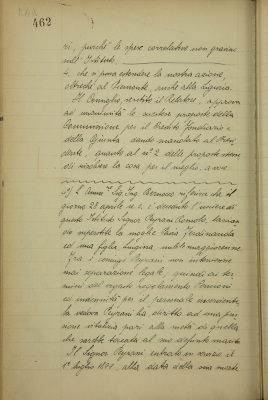 462
ri, purché le spese correlative non gravino
sull'Istituto.
4. che si possa estendere la nostra azione,
oltreché al Piemonte, anche alla Liguria.
Il Consiglio, sentito il Relatore, approva
ad unanimità le modeste proposte della
Commissione per il Credito Fondiario e
della Giunta, dando mandato al Presi-
dente, quanto al n° 2 delle proposte stesse
di risolvere la cosa per il meglio, a voce.
5) L'Amm. Sig. Ing. riferisce che il
giorno 28 aprile u. s. è decesso l'usciere di
questo Istituto Signor Peyrani Romolo, lascian-
do superstite la moglie Ferdinanda
ed una figlia Luigina nubile maggiorenne.
Fra i coniugi Peyrani non intervenne
mai separazione legale, quindi ai ter-
mini del vigente regolamento Pensioni
ed indennità per il personale
la vedova Peyrani ha diritto ad una pen-
sione vitalizia pari alla metà di quella
che sarebbe toccata al suo defunto marito.
Il Signor Peyrani entrato in servizio il
1° luglio alla data della sua morte